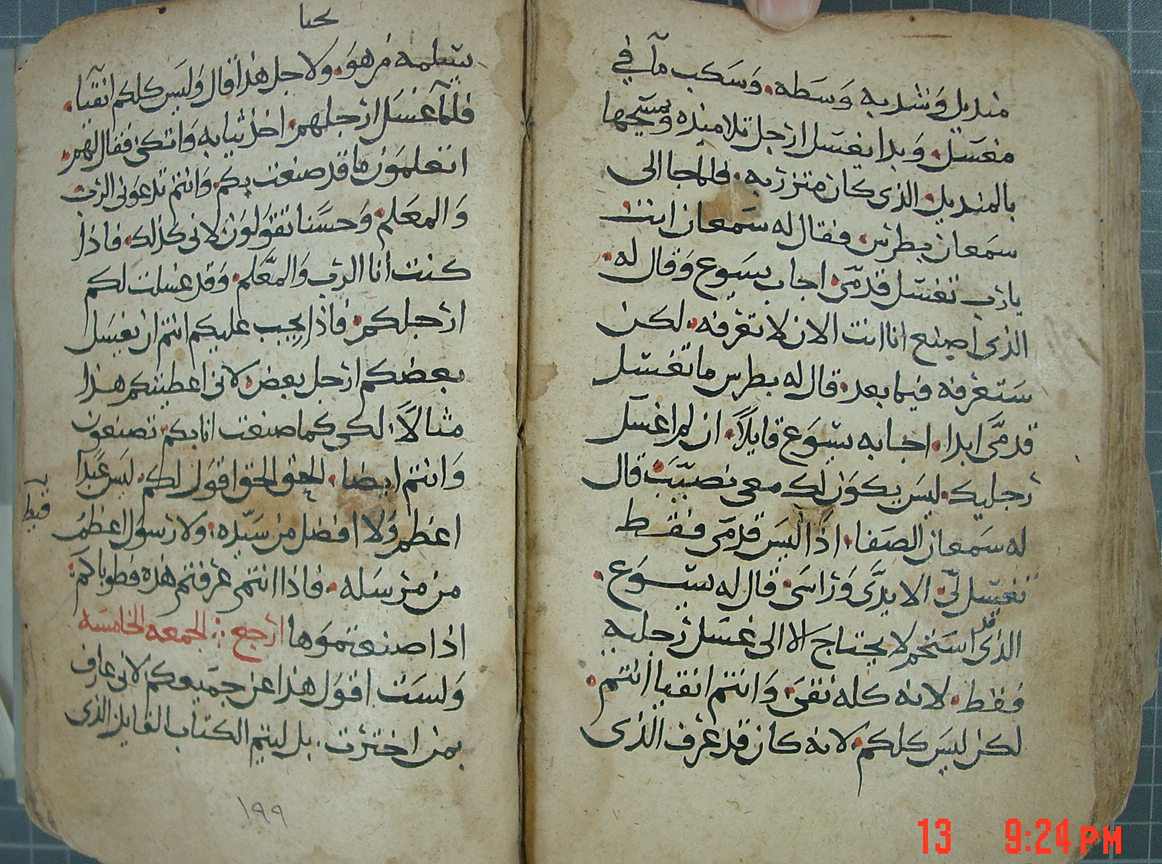 منديل وشد به وسطه. وسكب مآ في
مغسل. وبدا يغسل ارجل تلاميذه ويمسحها
بالمنديل الذى كان متزر به. فلما جا الى
سمعان بطرس. فقال له سمعان انت
يارب تغسل قدمَى. اجاب يسوع وقال له.
الذى اصنع انا انت الان لا تعرفه. لكن
ستعرفه فيما بعد. قال له بطرس ما تغسل
قدمَى ابدا. اجابه يسوع قايلاً. ان لم اغسل
رجليك. ليس يكون لك معى نصيب. قال
له سمعان الصفا. اذا ليس قدمى فقط
تغسل لى. الا يدَى وراسى. قال له يسوع.
الذى استحم لا يحتاج الا الى غسل رجليه
فقط. لانه كله نقى. وانتم انقيا انتم.
لكن ليس كلكم. لانه كان قد عرف الذى
يحنا
يسلمه من هو. ولاجل هذا قال وليس كلكم انقيا.
فلما غسل ارجلهم. اخذ ثيابه واتكى. فقال لهم.
اتعلمون ما قد صنعت بكم. وانتم تدعونى الرب
والمعلم. وحسنا تقولون لانى كذلك. فاذا
كنت انا الرب والمعلم. وقد غسلت لكم
ارجلكم. فاذا يجب عليكم انتم ان يغسل
بعضكم ارجل بعض. لانى اعطيتكم هذا
مثالاً. لكى كما صنعت انا بكم. تصنعون
وانتم ايضا. الحق الحق اقول لكم. ليس عبدآ
اعظم ولا افضل من سيده. ولا رسول اعظم
قبط
من مرسله. فاذا انتم عرفتم هذه فطوباكم.
اذا صنعتموها ارجع ؛ الجمعه الخامسه
ولست اقول هذا عن جميعكم. لانى عارف
بمن اخترت. بل ليتم الكتاب القايل الذى
١٩٩
13 9:24 PM